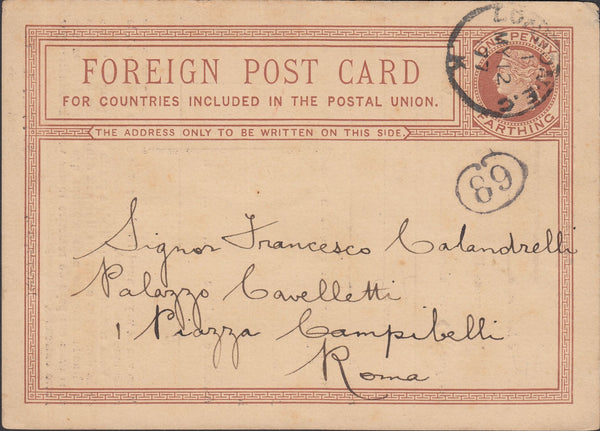 FOREIGN POST CARD
FOR COUNTRIES INCLUDED IN THE POSTAL UNION.
THE ADDRESS ONLY TO BE WRITTEN ON THIS SIDE.
PENNY
FARTHING
E.C
MY 12
94
K
69
Signor Francesco Calandrelli
Palazzo Cavelletti
1 Piazza Campitelli
Roma